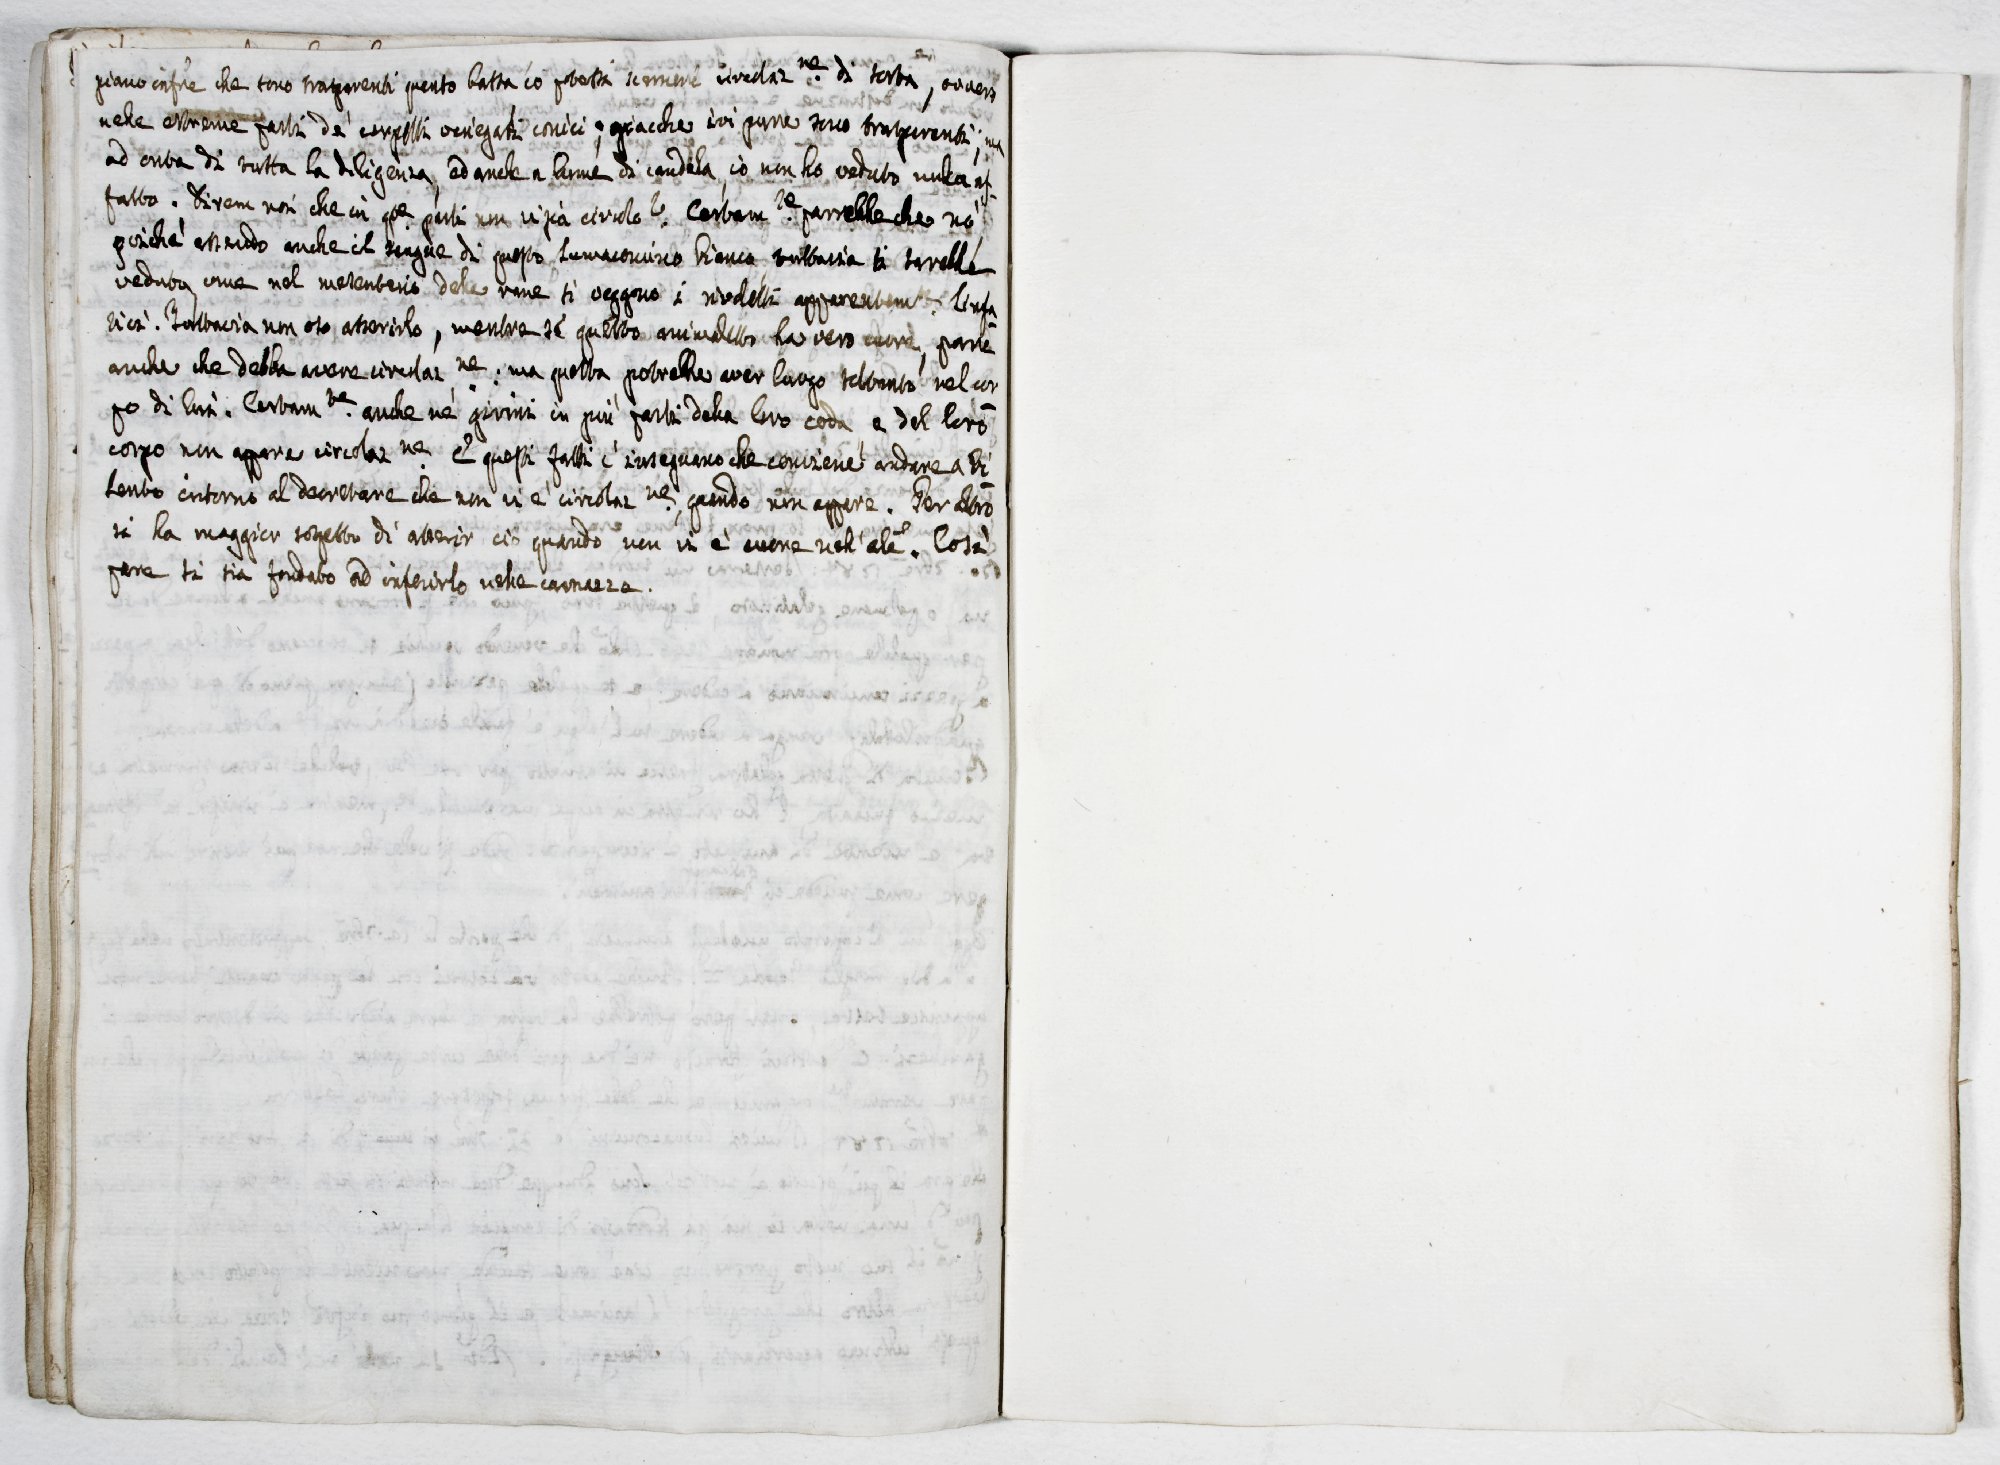 piano infre che sono trasparenti quanto basta io potessi scernere circolaz.ne di sorta, ovvero
nelle estreme parti de' corpetti variegati conici, giacche ivi pure sono trasparenti; ma
ad onta di tutta la diligenza, ed anche a lume di candela, io non ho veduto nulla af-
fatto. Direm noi che in que parti non vi sia circolo? Certam.te parrebbe che nò,
poiché essendo anche il sangue di questo lumaconcino bianco, tuttavia si sarebbe
veduto, come nel mesenterio delle rane si veggono i rivoletti apparentem.te linfa
tici. Tuttavia non oso asserirlo, mentre se questo animaletto ha vero cuore, pare
anche che debba avere circolaz.ne: ma questa potrebbe aver luogo soltanto nel cor
po di lui. Certam.te anche ne' girini in più parti della loro coda e del loro
corpo non appare circolaz.ne E questi fatti c'insegnano che conviene andare a ri
lento intorno al decretare che non vi è circolaz.ne, quando non appare. Per altro
si ha maggior sospetto di asserir ciò quando non vi è cuore nell' ale. Così
pare si sia fondato ad inferirlo nelle